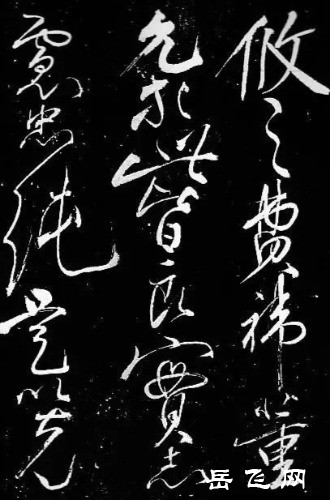 攸之費禕董
允等此皆良實志
慮忠純是以先
岳飞网